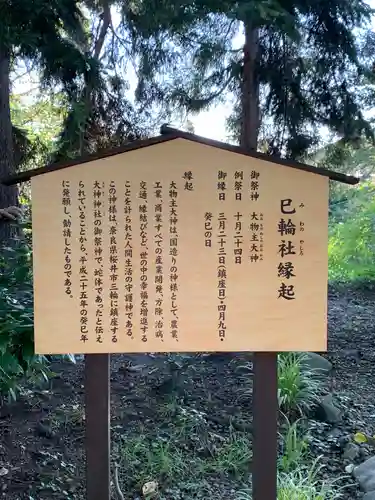 巳輪社縁起
みわのやしろ
御祭神 大物主大神
おおものぬしのおおかみ
例祭日 十月二十四日
御縁日 三月二十三日（鎮座日）・四月九日・
癸巳の日
縁起
大物主大神は、国造りの神様として、農業、
工業、商業すべての産業開発、方除、治病、
交通、縁結びなど、世の中の幸福を増進する
ことを計られた人間生活の守護神である。
この神様は、奈良県桜井市三輪に鎮座する
大神神社の御祭神で、蛇体であったと伝え
られていることから、平成二十五年の癸巳年
に発願し、勧請したものである。